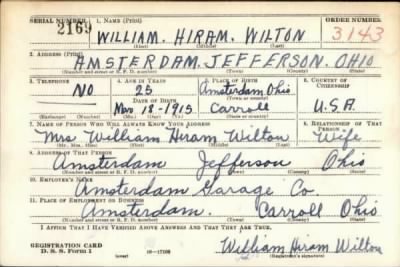 SERIAL NUMBER 1. NAME (Print) ORDER NUMBER
2169 WILLIAM. HIRAM. WILTON 3143
(First) (Middle) (Last)
2. ADDRESS (Print)
AMSTERDAM. JEFFERSON. OHIO
(Number and street or R. F. D. number) (Town) (County) (State)
3. TELEPHONE 4. AGE IN YEARS 5. PLACE OF BIRTH 6. COUNTRY OF CITIZENSHIP
NO 25 Amsterdam Ohio
DATE OF BIRTH (Town or county)
Mar 18-1915 Carroll U.S.A.
(Exchange) (Number) (Mo.) (Day) (Yr.) (State or country)
7. NAME OF PERSON WHO WILL ALWAYS KNOW YOUR ADDRESS 8. RELATIONSHIP OF THAT PERSON
Mrs William Hiram Wilton Wife
(Mr., Mrs., Miss) (First) (Middle) (Last)
9. ADDRESS OF THAT PERSON
Amsterdam Jefferson Ohio
(Number and street or R. F. D. number) (Town) (County) (State)
10. EMPLOYER'S NAME
Amsterdam Garage Co.
11. PLACE OF EMPLOYMENT OR BUSINESS
Amsterdam. Carroll Ohio
(Number and street or R. F. D. number) (Town) (County) (State)
I AFFIRM THAT I HAVE VERIFIED ABOVE ANSWERS AND THAT THEY ARE TRUE.
REGISTRATION CARD
D. S. S. Form 1 William Hiram Wilton
(Registrant's signature)